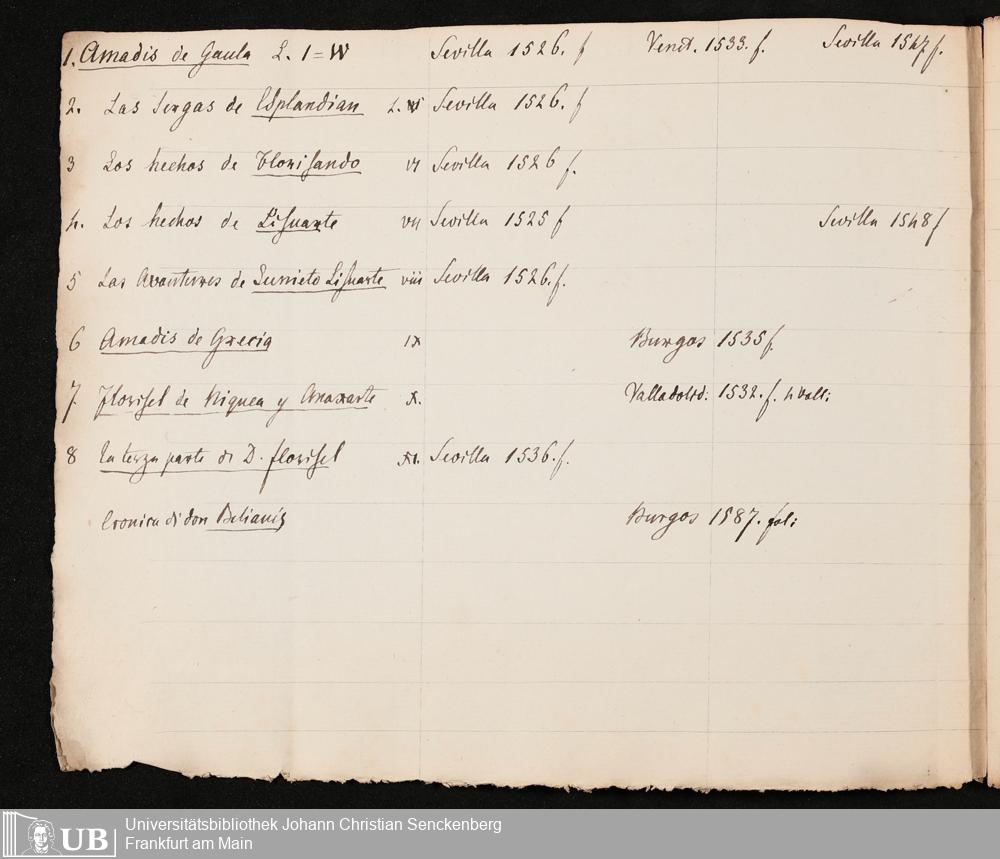 1. Amadis de Gaula L. I = IV Sevilla 1526. f Venet. 1533. f. Sevilla 1547 f.
2. Las Sergas de Esplandian L. V Sevilla 1526. f
3 Los hechos de Florisando VI Sevilla 1526 f.
4. Los hechos de Lisuarte VII Sevilla 1525 f Sevilla 1548 f
5 Las de Lisuarte VIII Sevilla 1526. f.
6 Amadis de Grecia IX Burgos 1535 f.
7. Florisel de Niquea y Anaxarte X. Valladolid: 1532. f.
8 La terza parte di D. florisel XI. Sevilla 1536. f.
Cronica di don Belianis Burgos 1587. fol:
UB
Universitätsbibliothek Johann Christian Senckenberg
Frankfurt am Main